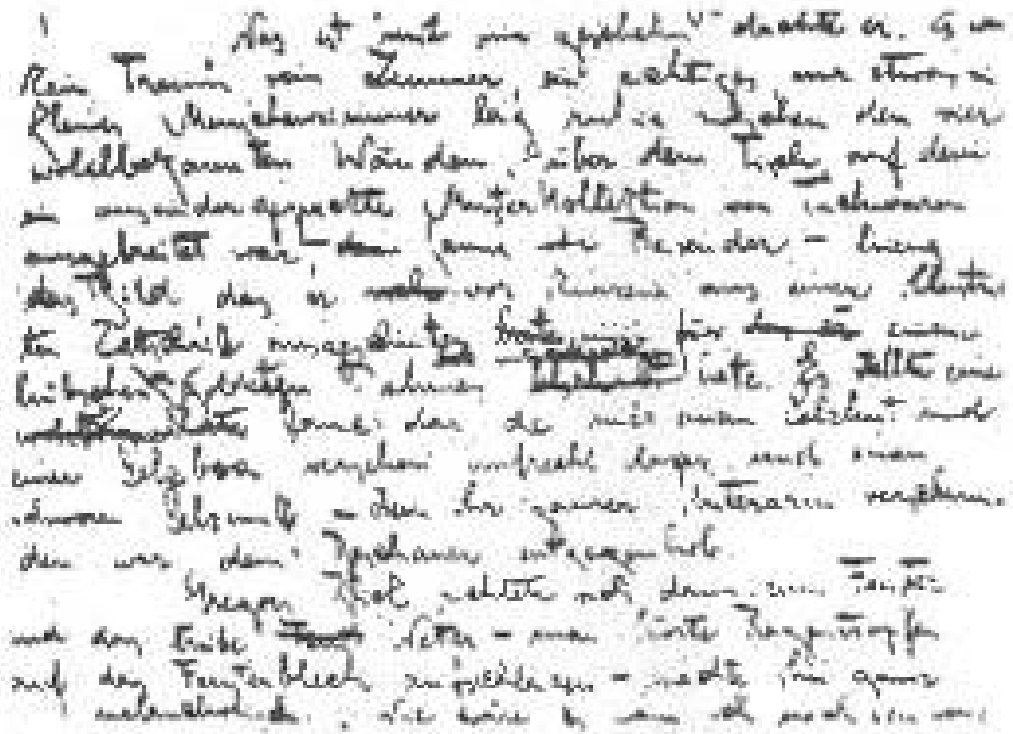 Was ist mit mir geschehen" dachte er. Es war
kein Traum, sein Zimmer, ein richtiges nur etwas zu
kleines Menschenzimmer lag ruhig zwischen den vier
wohlbekannten Wänden, über dem Tisch auf dem
eine auseinandergepackte Musterkollektion von Tuchwaren
ausgebreitet war – Samsa war Reisender – hieng
das Bild, das er vor kurzem aus einer illustrier
ten Zeitschrift ausgeschnitten für einem
hübschen hatte. Es stellte eine
Dame dar, die mit einem Pelzhut und
einer Pelzboa versehen aufrecht dasass und einen
schweren Pelzmuff in dem ihr ganzer Unterarm verschwun-
den war, dem Beschauer entgegenhob.
Gregors Blick richtete sich dann zum Fenster
und das trübe Wetter – man hörte Regentropfen
auf das Fensterblech aufschlagen – machte ihn ganz
melancholisch. „Wie wäre es wenn ich noch ein wenig